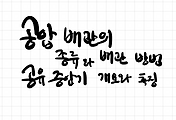 공압 배관의
종류와 배관 방법
공유 증압기 개요와 특징